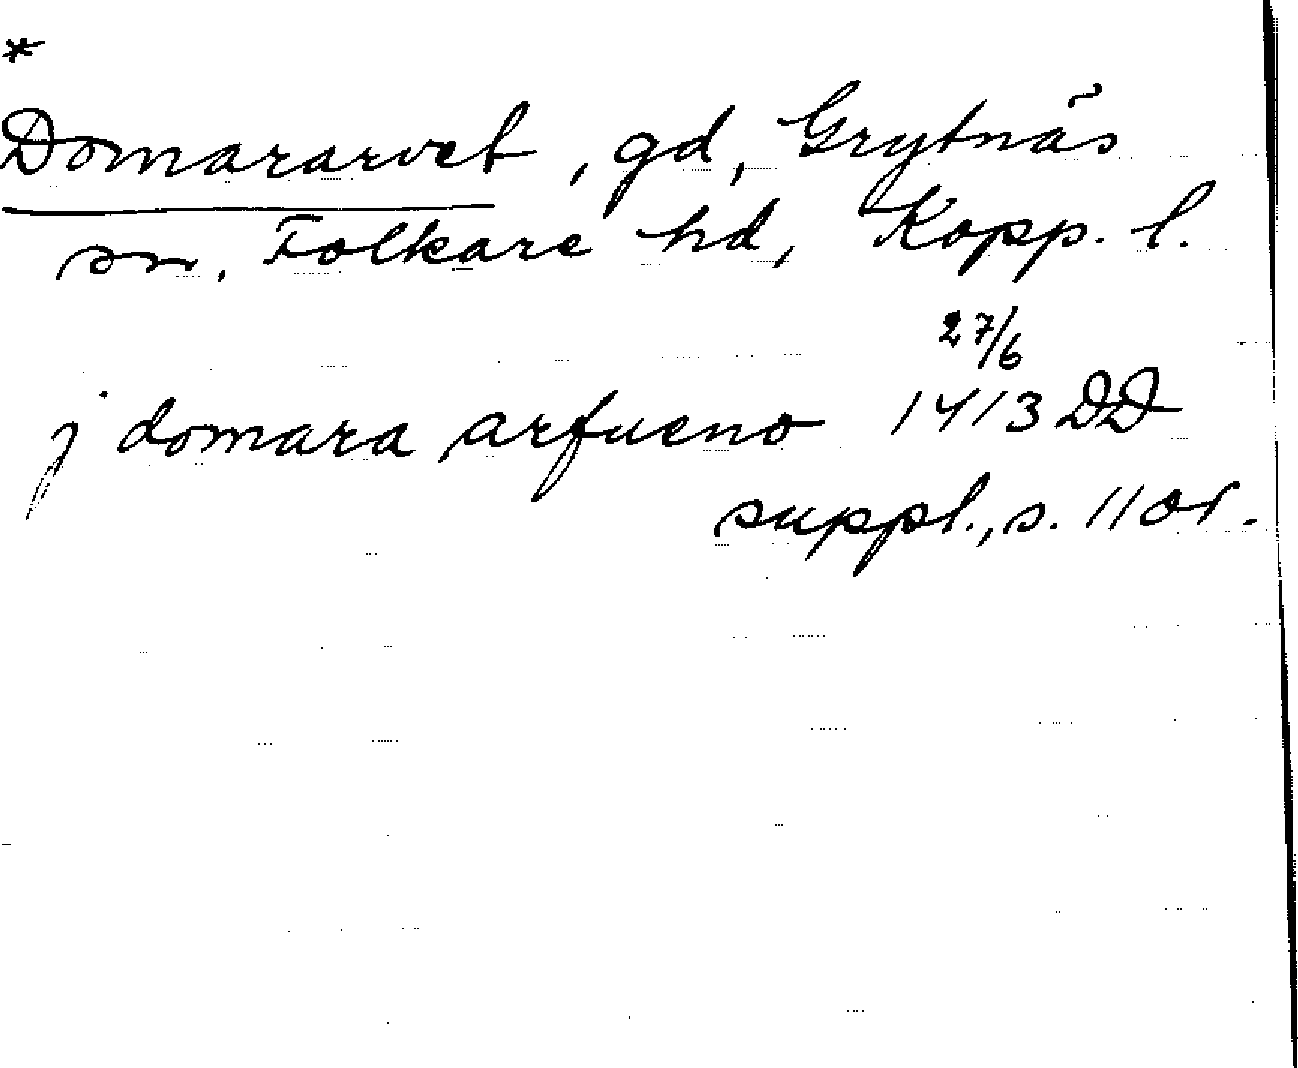 *
Domararvet, gd, Grytnäs
sn, Folkare hd, Kopp. l.
27/6
j domara arfueno 1413 DD
suppl., s. 110f.